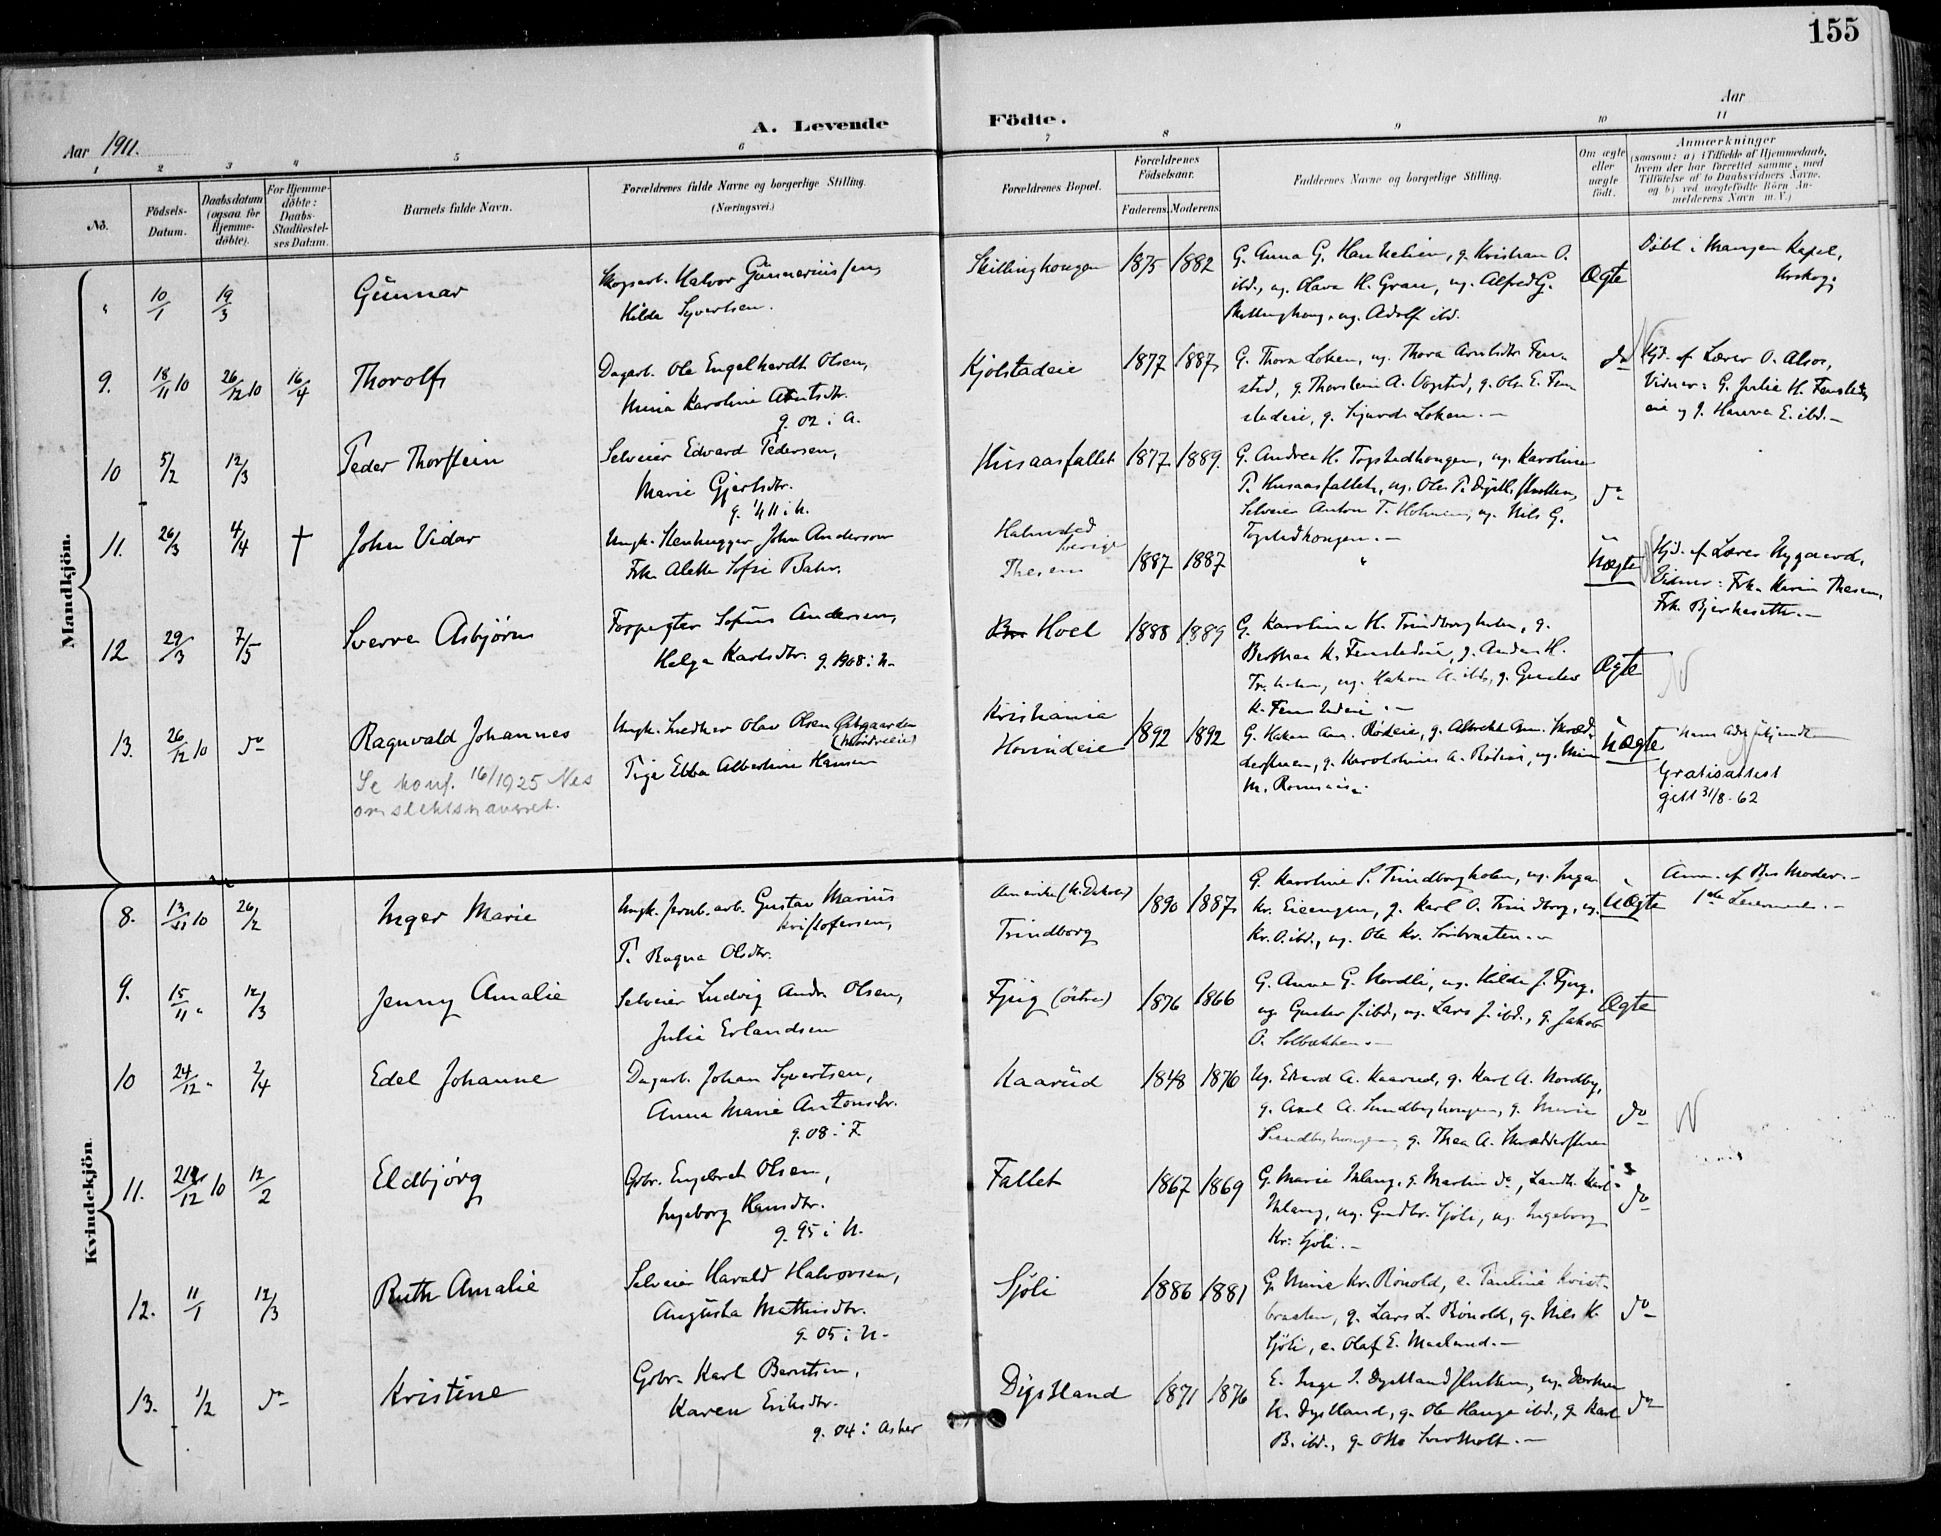 155
Aar 1911.
A. Levende Födte.
Aar
1 2 3 4 5 6 7 8 9 10 11
No.
Födsels-Datum.
Daabsdatum (ogsaa for Hjemmedöbte).
For Hjemmedöbte: Daabs-Stadfæstelses Datum.
Barnets fulde Navn.
Forældrenes fulde Navne og borgerlige Stilling. (Næringsvei.)
Forældrenes Bopæl.
Forældrenes Födselsaar.
Faderens. Moderens.
Faddernes Navne og borgerlige Stilling.
Om ægte eller uægte født.
Anmærkninger
(saasom: a) i Tilfælde af Hjemmedaab, hvem der har forrettet samme, med Tilföielse af to Daabsvidners Navne, og b) ved uægtefödte Börn Anmelderens Navn m. V.)
Mandkjön.
" 10/1 19/3 Gunnar
Skogsarb. Halvor Gunneriussen,
Hilda Syvertsen.
Skillinghougen 1875 1882
G. Anna G. Hankelien, g. Kristian O.
ibd., ug. Olava H. Gran, ug. Alfred G.
ug. Adolf ibd.
Ægte
Döbt i Mangen Kapel,
Urskog;
9. 18/11 10 26/12 10 16/4 Thorolf
Dagarb. Ole Engelhardt Olsen,
Karoline Arntsdtr.
g. 02 i A.
Kjölstadeie 1877 1887
G. Thora Loken, ug. Thora Arntsdtr. Fen-
stad, g. Thorstein A. Vogsted, g. Ole E. Fen-
stadeie, g. Sigurd Loken. -
do
Hjd. af Lærer O. Alsos,
Vidner: G. Julie H. Fensteds
eie og g. Hanna E. ibd. -
10 5/2 12/3 Peder Thorstein
Selveier Edvard Pedersen,
Marie Gjertsdtr.
g. 1/1 11 i N.
Husaasfallet 1877 1889.
G. Andrea H. Togstadhougen, ug. Karoline
P. Husaasfallet, ug. Ole P.
Selveier Anton T. Holmen, ug. Nils G.
Togstadhougen. -
do
11. 26/3 4/4 † John Vidar
Ungk. Stenhugger John Anderson
Frk. Alette Sofie Bahr.
Halmsted
Sverige
Thesen 1887 1887
"
Uægte
Hjd. af Lærer Nygaard,
Vidner: Frk. Karin Thesen,
Frk. Bjerkesetth. -
12 29/3 7/5 Sverre Asbjørn
Forpagter Sofus Andersen,
Helga Karlsdtr. g. 1908 i N.
Hoel 1888 1889
G. Karoline H. Trindborgholen, g.
K. Fenstadeie, g. Anders H.
ug. Hakon A. ibd., g. Gustav
K. Fenstadeie. -
Ægte
13. 26/12 10 do Ragnvald Johannes
Ungk. Snedker Olav Olsen Østgaarden
(Nordreeie)
Pige Ebba Albertine Hansen
Se konf. 16/1925 Nes
om slektsnavnet.
Kristiania
Hovindeie 1892 1892
G. Hakon Am. Rødeie, g. Albrecht Gun.
M.
Uægte
Gratisattest
gitt 31/8-62
Kvindekjön
8. 13/11 10 26/2 Inger Marie
Ungk. Jernb.arb. Gustav Marius
Kristofersen,
P. Ragna Olsdtr.
Amerika (N. Dakota)
Trindborg 1890 1887
G. Karoline P. Trindborgholen, ug. Inga
Kr. Eieengen, g. Karl O. Trindborg, ug.
Kr. O. ibd., ug. Ole Kr. -
Uægte
Anm. af Bns Moder. -
1ste Leiermaal. -
9. 15/11 " 12/3 Jenny Amalie
Selveier Ludvig Andr. Olsen,
Julie Erlandsen
Fjug (östre) 1876 1866
G. Anna G. Nordli, ug. Hilda J. Fjug,
ug. Gustav J. ibd., ug. Lars J. ibd., g. Jakob
O. Solbakken. -
Ægte
10 24/12 " 2/4 Edel Johanne
Dagarb. Johan Syvertsen,
Anna Marie Antonsdtr.
g. 08 i F
Kaarud 1848 1876
Ug. Edvard A. Kaarud, g. Karl A. Nordby,
g. Axel A. Sundbyhougen, g. Marie
Sundbyhougen, g. Thea A.
do
11. 21/12 10 12/2 Eldbjörg
Gbr. Engebret Olsen,
Ingeborg Hansdtr.
g. 95 i N.
Fallet 1867 1869
G. Marie Uklang, g. Martin do, Landh. Karl
Uklang, ug. Gudbr. Sjöli, ug. Ingeborg
Kr. Sjöli. -
do
12. 11/1 12/3 Ruth Amalie
Selveier Harald Halvorsen,
Augusta Mathisdtr.
g. 05 i N.
Sjöli 1886 1881
G. Marie Kr. Rönold, e. Pauline Kvist-
braaten, g. Lars L. Rönold, g. Nils K.
Sjöli, e. Olaf E. Maaland. -
do
13. 1/2 do Kristine
Gbr. Karl Berntsen,
Karen Eriksdtr.
g. 04 i Asker
Dystland 1871 1876
E. Inge J. ug. Dorthea
K. Dystland, g. Ole Hauge ibd., g. Karl
B. ibd., g. Otto -
do